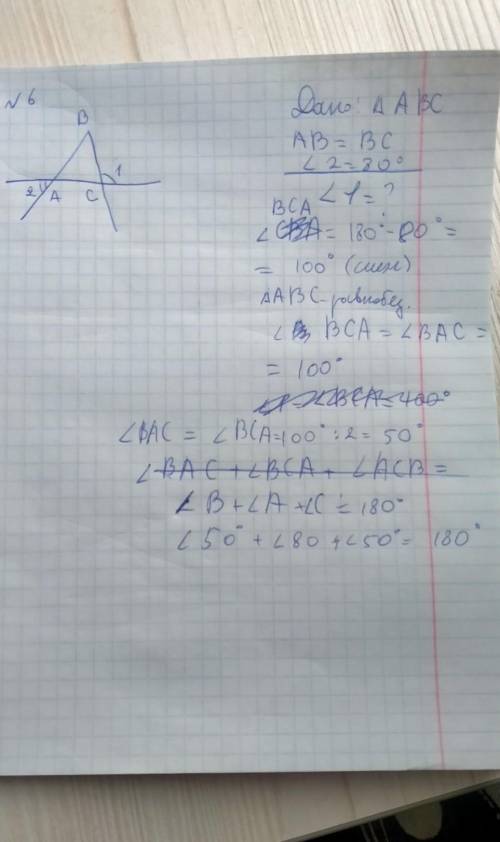 № 6
B
2
A
C
1
Дано: △ ABC
AB = BC
∠2=80°
∠1=?
BCA
∠CBA = 180° - 80° =
= 100° (смеж)
△ABC - равнобед.
∠B BCA = ∠BAC =
= 100°
∠BCA = 100°
∠BAC = ∠BCA=100° : 2 = 50°
∠BAC + ∠BCA + ∠ACB =
∠B + ∠A + ∠C = 180°
∠50° + ∠80 + ∠50° = 180°